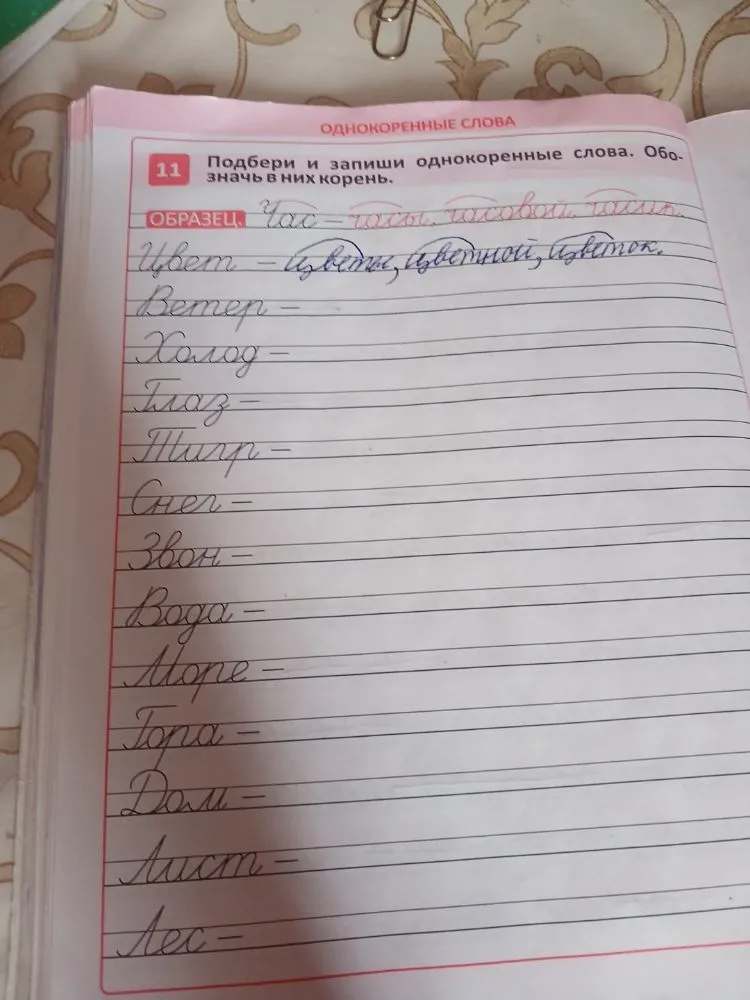 ОДНОКОРЕННЫЕ СЛОВА
11 Подбери и запиши однокоренные слова. Обо-
значь в них корень.
ОБРАЗЕЦ. Час – часы, часовой, часик.
Цвет – цветы, цветной, цветок.
Ветер –
Холод –
Глаз –
Тигр –
Снег –
Звон –
Вода –
Море –
Гора –
Дом –
Лист –
Лес –